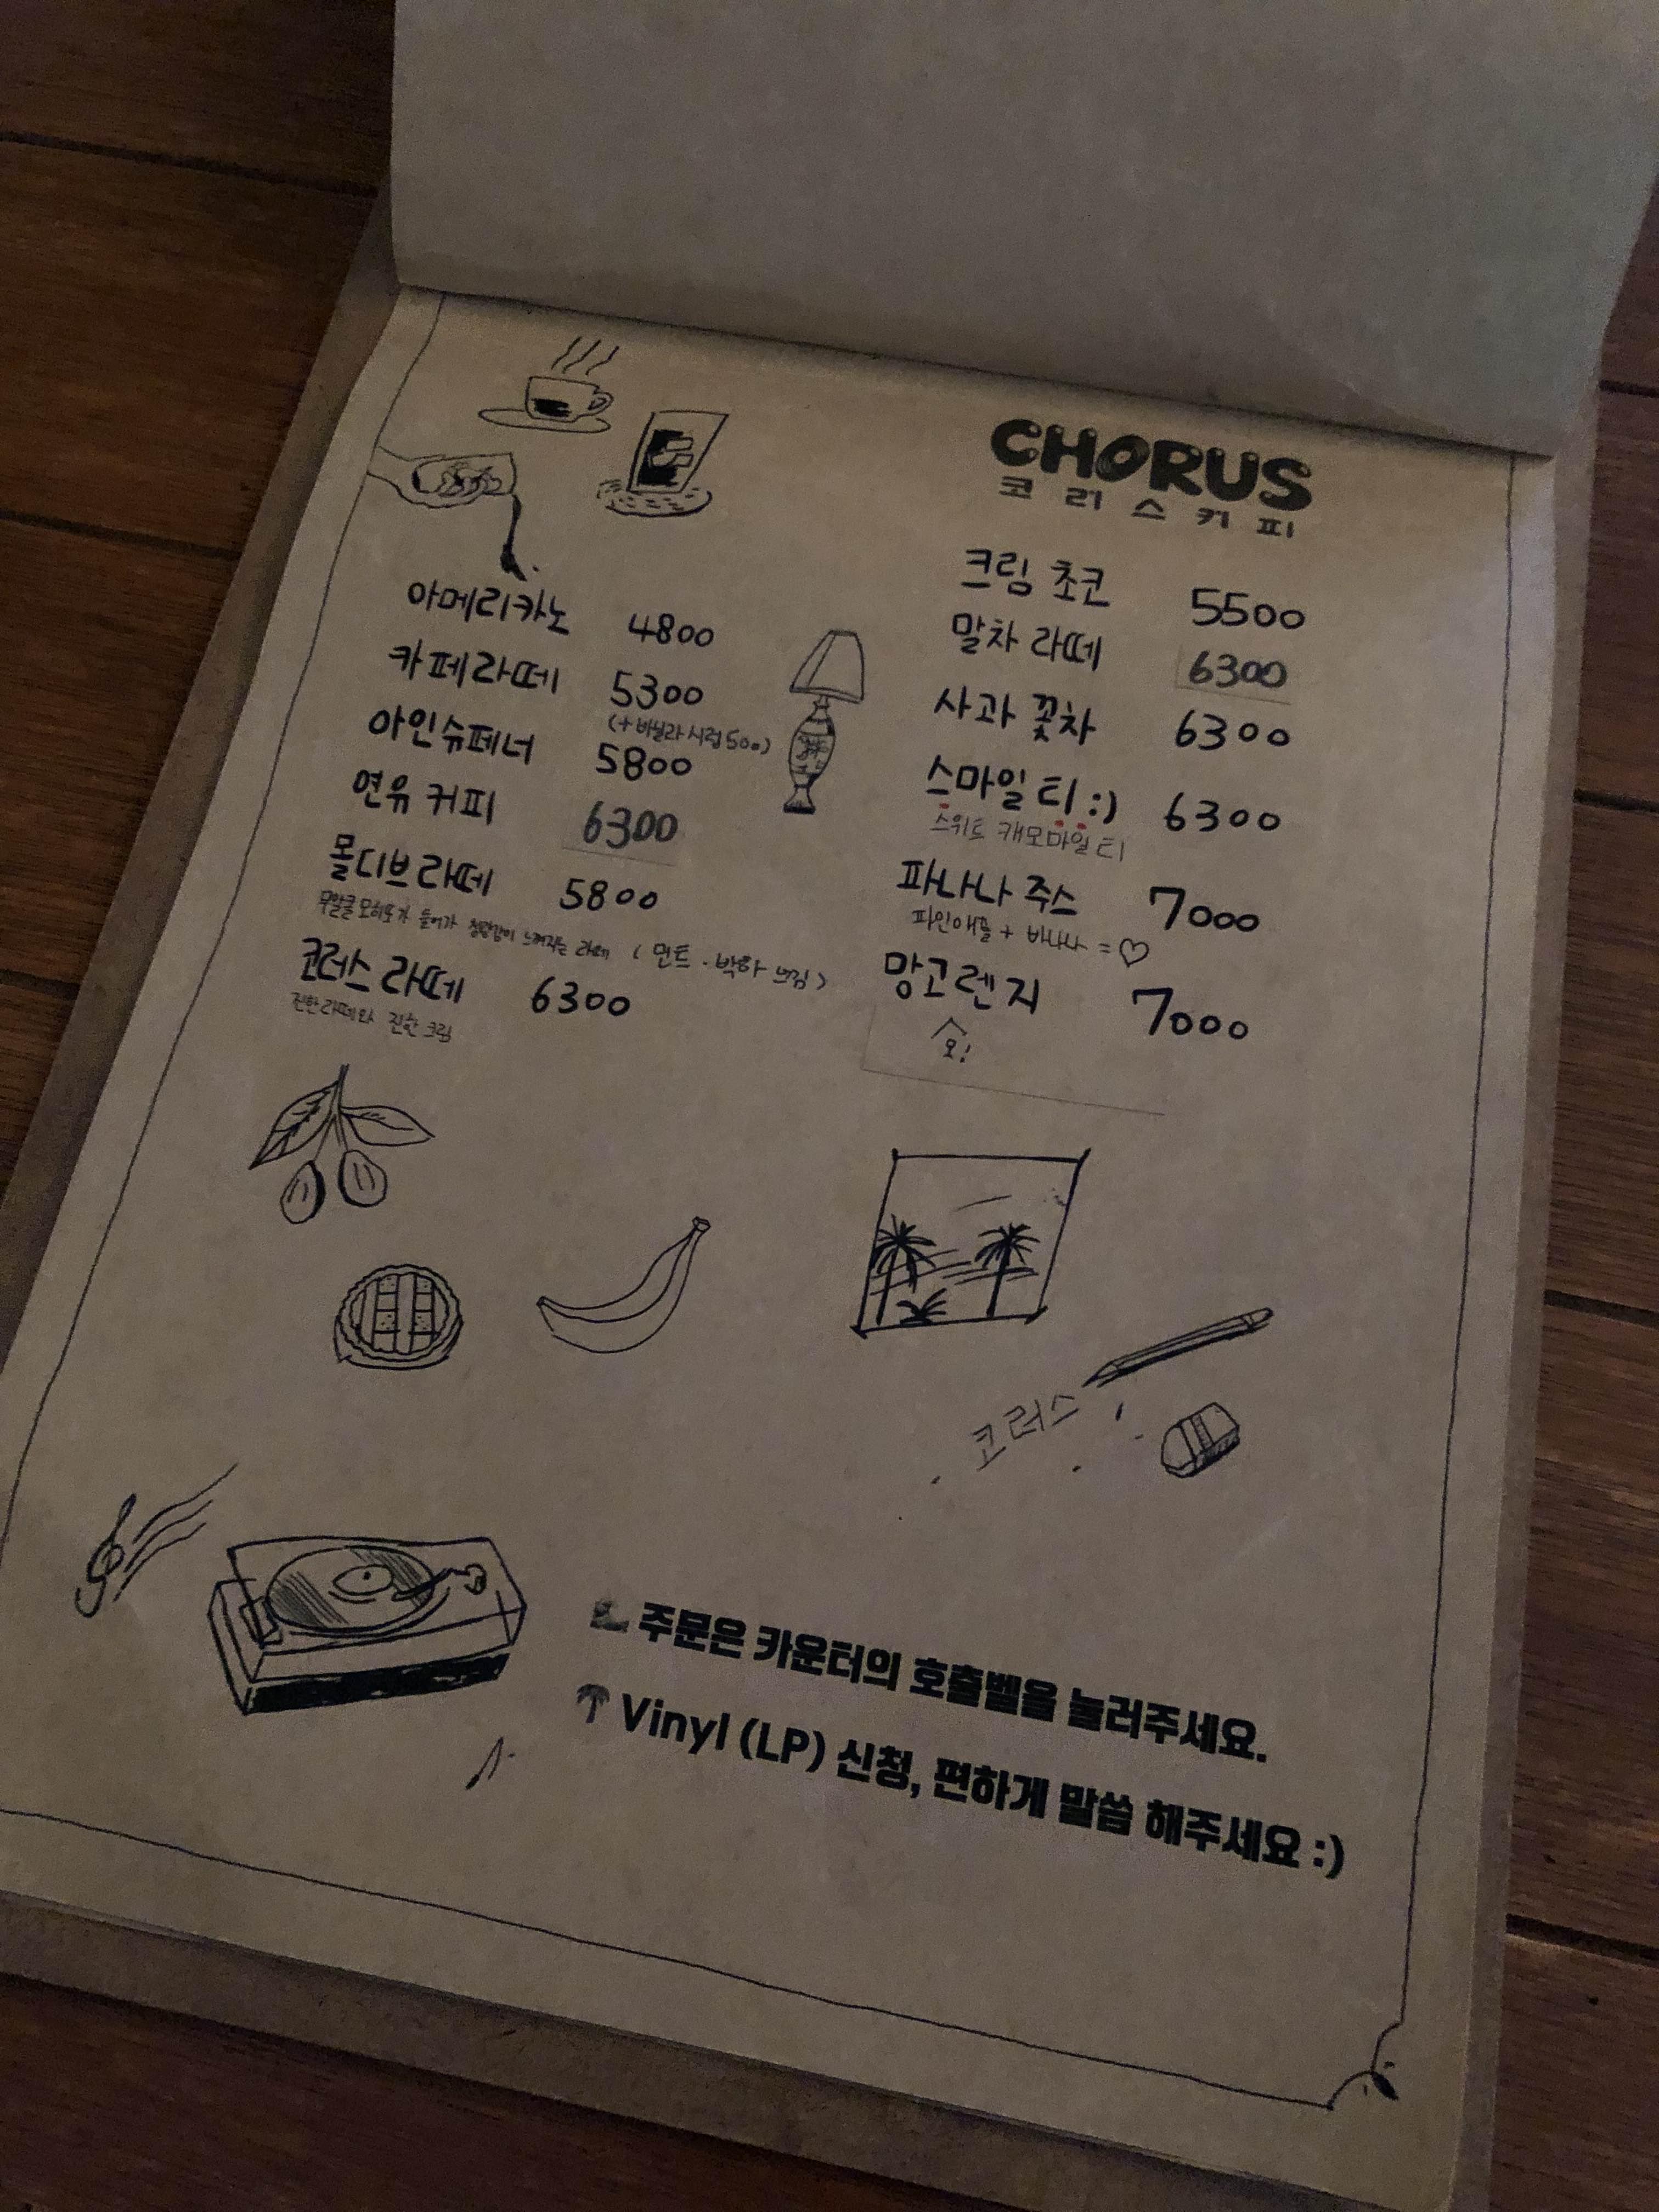 CHORUS
코러스커피
아메리카노 4800
카페라떼 5300
(+바닐라 시럽 500)
아인슈페너 5800
연유 커피 6300
몰디브 라떼 5800
무알콜 모히또가 들어가 청량감이 느껴지는 라떼 (민트·박하 느낌)
코러스 라떼 6300
진한 라떼와 진한 크림
크림 초코 5500
말차 라떼 6300
사과 꽃차 6300
스마일 티 :) 6300
스위트 캐모마일 티
파나나 주스 7000
파인애플 + 바나나 = ♡
망고렌지 7000
오!
코러스
주문은 카운터의 호출벨을 눌러주세요.
Vinyl (LP) 신청, 편하게 말씀 해주세요 :)